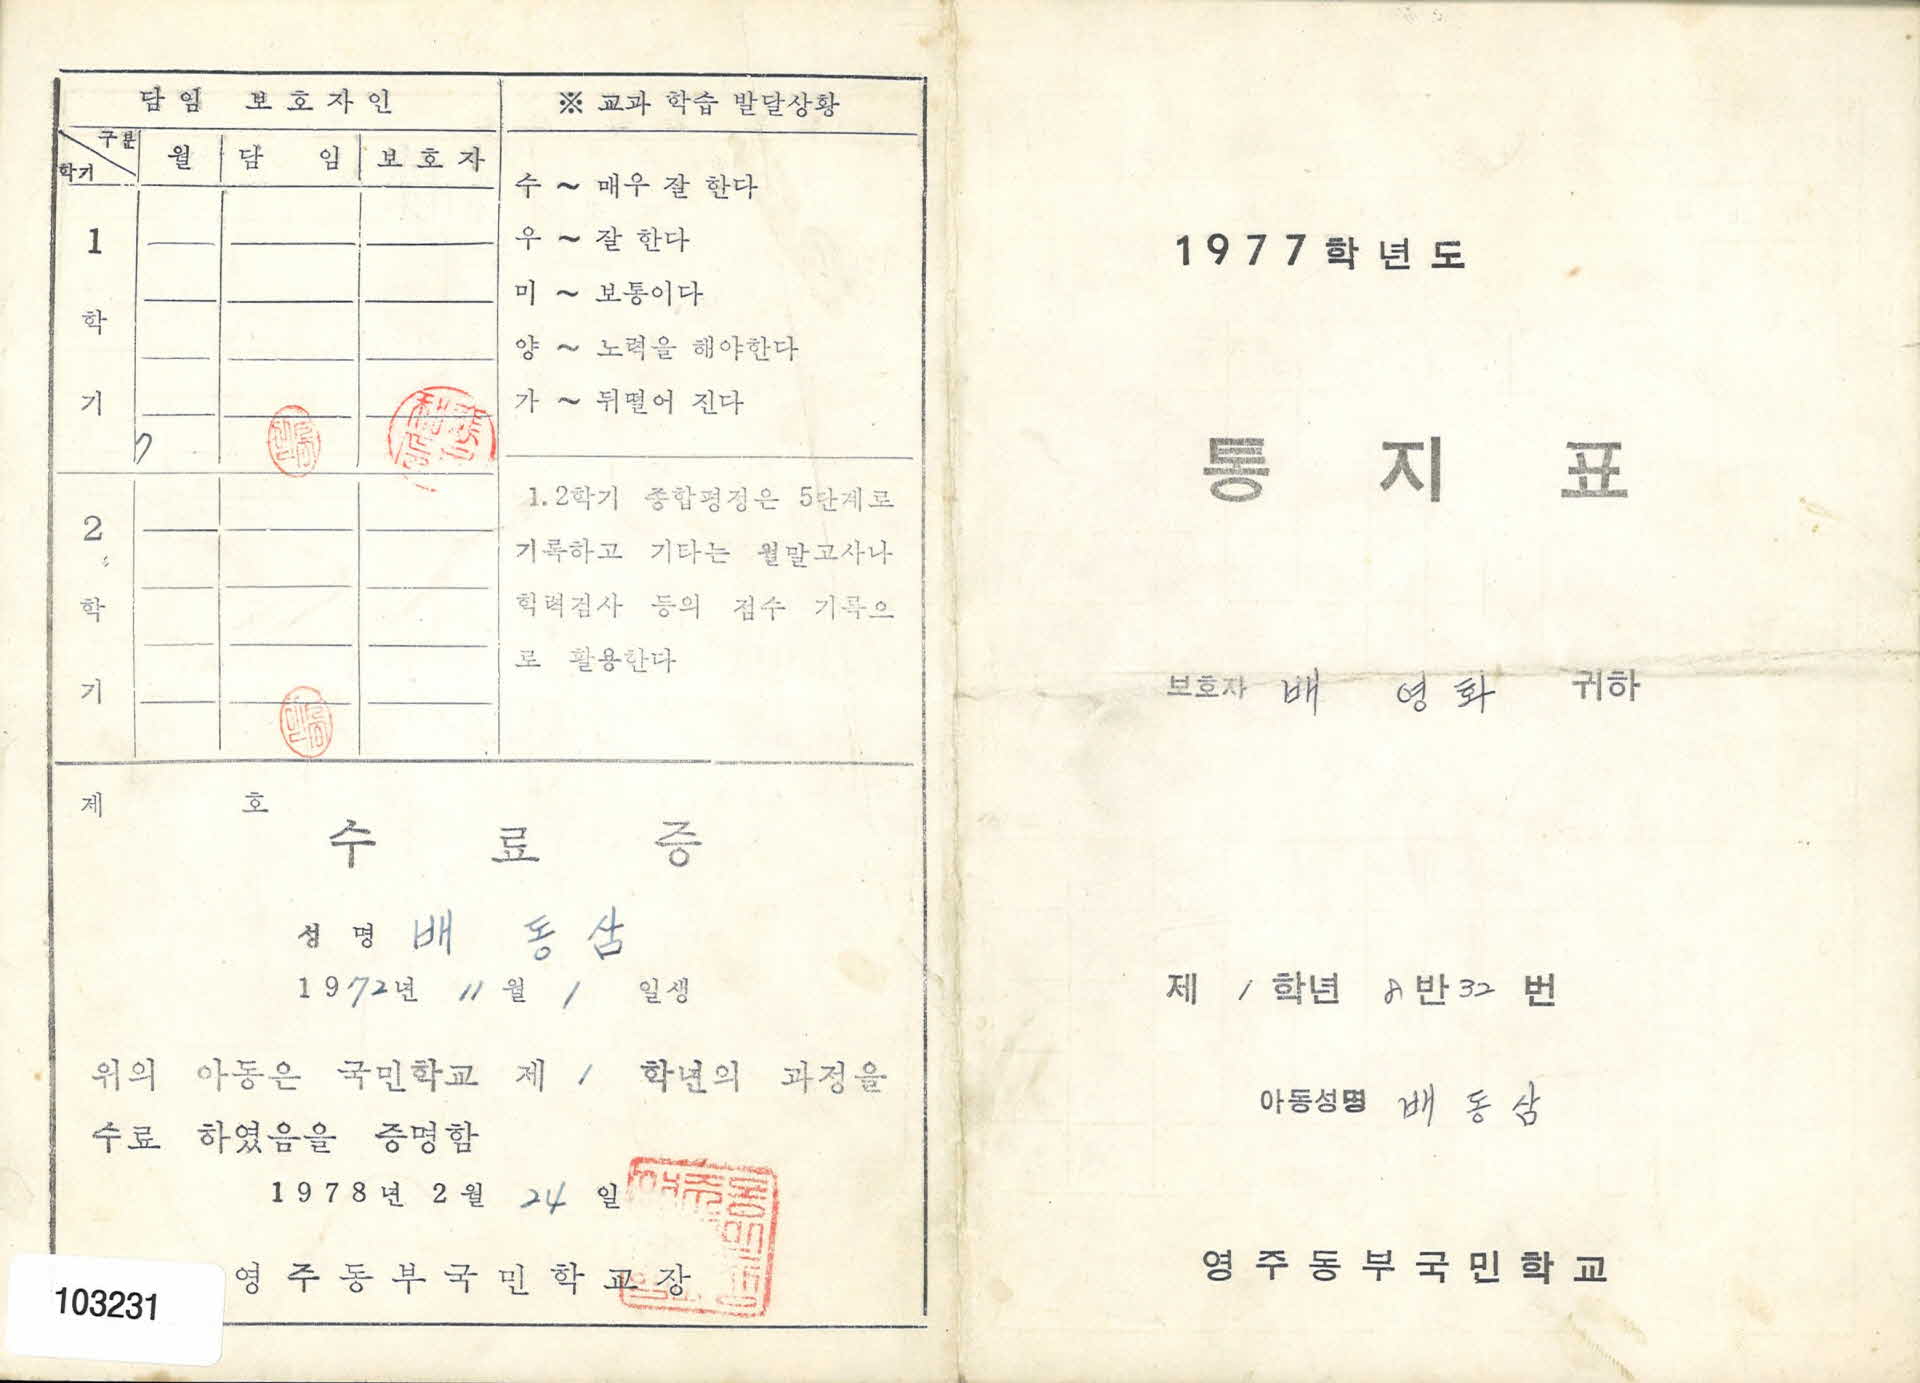 담임 보호자인
구분
학기
월 담 임 보호자
1
학
기
7
2
학
기
※ 교과 학습 발달상황
수 ~ 매우 잘 한다
우 ~ 잘 한다
미 ~ 보통이다
양 ~ 노력을 해야한다
가 ~ 뒤떨어 진다
1.2학기 종합평정은 5단계로
기록하고 기타는 월말고사나
학력검사 등의 점수 기록으
로 활용한다
제 호
수 료 증
성 명 배 동 삼
1972년 11월 1 일생
위의 아동은 국민학교 제 1 학년의 과정을
수료 하였음을 증명함
1978년 2월 24 일
영주동부국민학교장
103231
1977학년도
통 지 표
보호자 배 영 화 귀하
제 1 학년 8 반 32 번
아동성명 배 동 삼
영주동부국민학교